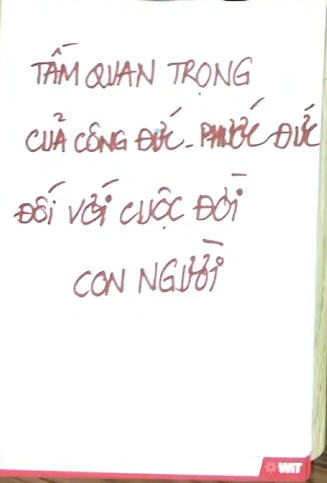 TẦM QUAN TRỌNG
CUẢ CÔNG ĐỨC - PHƯỚC ĐỨC
ĐỐI VỚI CUỘC ĐỜI
CON NGƯỜI
WiT